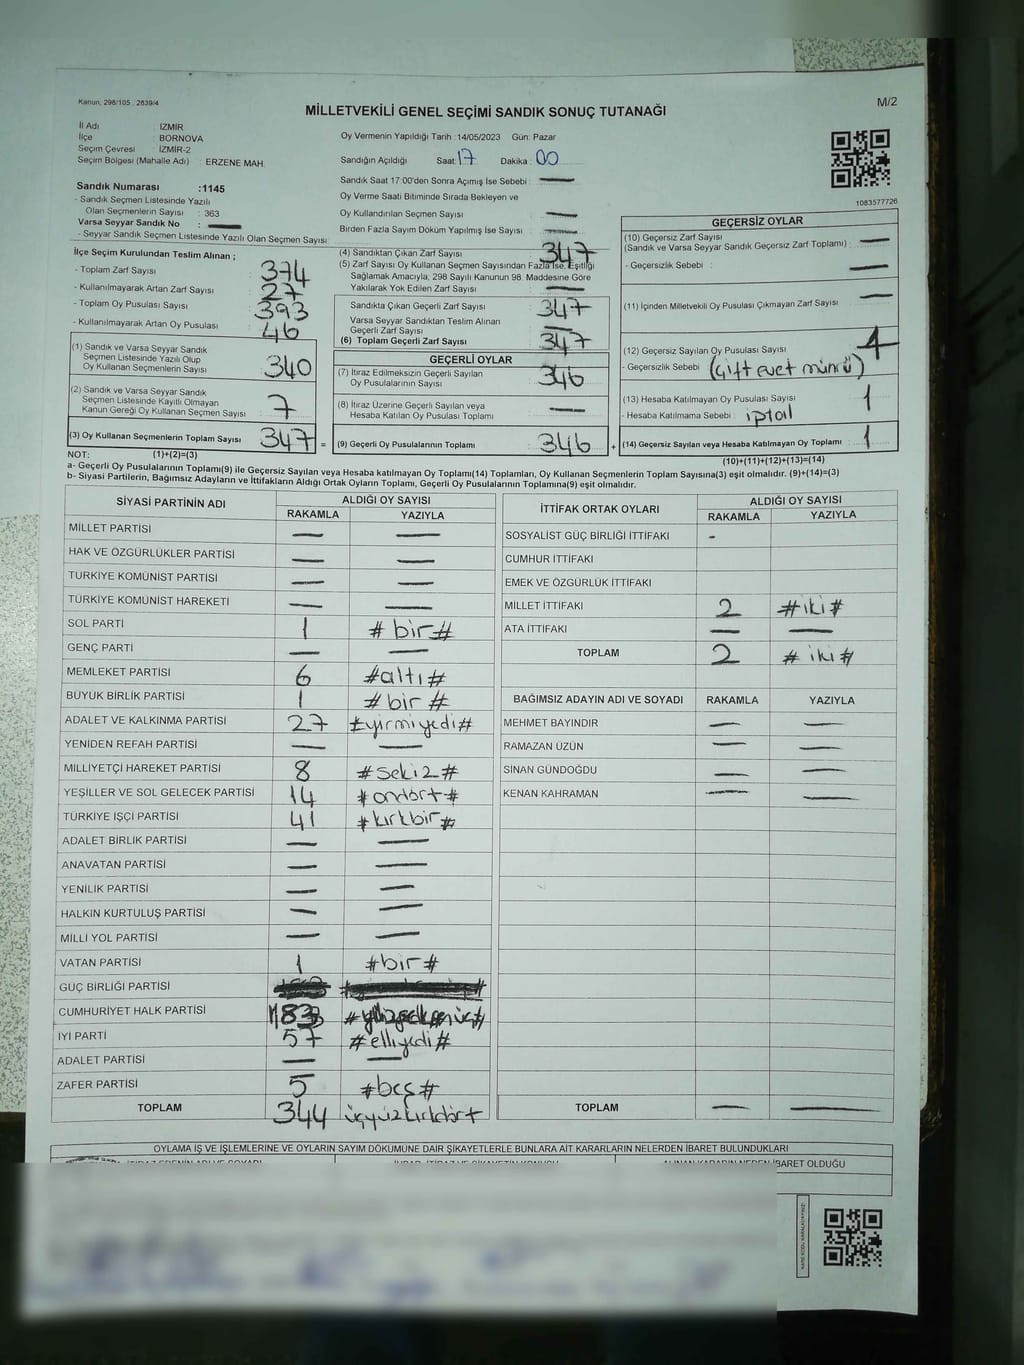 Kanun, 298/105 , 2839/4
M/2
MİLLETVEKİLİ GENEL SEÇİMİ SANDIK SONUÇ TUTANAĞI
İl Adı : İZMİR
İlçe : BORNOVA
Seçim Çevresi : İZMİR-2
Seçim Bölgesi (Mahalle Adı) : ERZENE MAH.
Oy Vermenin Yapıldığı Tarih :14/05/2023 Gün: Pazar
Sandığın Açıldığı Saat: 17 Dakika : 00
Sandık Saat 17:00'den Sonra Açımış İse Sebebi : —
Oy Verme Saati Bitiminde Sırada Bekleyen ve
Oy Kullandırılan Seçmen Sayısı : —
Birden Fazla Sayım Döküm Yapılmış İse Sayısı : —
1083577726
Sandık Numarası :1145
- Sandık Seçmen Listesinde Yazılı
Olan Seçmenlerin Sayısı : 363
Varsa Seyyar Sandık No : —
- Seyyar Sandık Seçmen Listesinde Yazılı Olan Seçmen Sayısı:
İlçe Seçim Kurulundan Teslim Alınan ;
- Toplam Zarf Sayısı : 374
- Kullanılmayarak Artan Zarf Sayısı : 27
- Toplam Oy Pusulası Sayısı : 393
- Kullanılmayarak Artan Oy Pusulası : 46
(1) Sandık ve Varsa Seyyar Sandık
Seçmen Listesinde Yazılı Olup
Oy Kullanan Seçmenlerin Sayısı : 340
(2) Sandık ve Varsa Seyyar Sandık
Seçmen Listesinde Kayıtlı Olmayan
Kanun Gereği Oy Kullanan Seçmen Sayısı : 7
(3) Oy Kullanan Seçmenlerin Toplam Sayısı : 347 =
(4) Sandıktan Çıkan Zarf Sayısı : 347
(5) Zarf Sayısı Oy Kullanan Seçmen Sayısından Fazla İse, Eşitliği
Sağlamak Amacıyla, 298 Sayılı Kanunun 98. Maddesine Göre
Yakılarak Yok Edilen Zarf Sayısı : —
Sandıkta Çıkan Geçerli Zarf Sayısı : 347
Varsa Seyyar Sandıktan Teslim Alınan
Geçerli Zarf Sayısı : —
(6) Toplam Geçerli Zarf Sayısı : 347
GEÇERLİ OYLAR
(7) İtiraz Edilmeksizin Geçerli Sayılan
Oy Pusulalarının Sayısı : 346
(8) İtiraz Üzerine Geçerli Sayılan veya
Hesaba Katılan Oy Pusulası Toplamı : —
(9) Geçerli Oy Pusulalarının Toplamı : 346 +
GEÇERSİZ OYLAR
(10) Geçersiz Zarf Sayısı
(Sandık ve Varsa Seyyar Sandık Geçersiz Zarf Toplamı) : —
- Geçersizlik Sebebi : —
(11) İçinden Milletvekili Oy Pusulası Çıkmayan Zarf Sayısı : —
(12) Geçersiz Sayılan Oy Pusulası Sayısı :
- Geçersizlik Sebebi : (Çift evet mührü)
(13) Hesaba Katılmayan Oy Pusulası Sayısı : 1
- Hesaba Katılmama Sebebi : iptal
(14) Geçersiz Sayılan veya Hesaba Katılmayan Oy Toplamı : 1
NOT: (1)+(2)=(3)
(10)+(11)+(12)+(13)=(14)
a- Geçerli Oy Pusulalarının Toplamı(9) ile Geçersiz Sayılan veya Hesaba katılmayan Oy Toplamı(14) Toplamları, Oy Kullanan Seçmenlerin Toplam Sayısına(3) eşit olmalıdır. (9)+(14)=(3)
b- Siyasi Partilerin, Bağımsız Adayların ve İttifakların Aldığı Ortak Oyların Toplamı, Geçerli Oy Pusulalarının Toplamına(9) eşit olmalıdır.
SİYASİ PARTİNİN ADI ALDIĞI OY SAYISI
RAKAMLA YAZIYLA
MİLLET PARTİSİ — —
HAK VE ÖZGÜRLÜKLER PARTİSİ — —
TÜRKİYE KOMÜNİST PARTİSİ — —
TÜRKİYE KOMÜNİST HAREKETİ — —
SOL PARTİ 1 #bir#
GENÇ PARTİ — —
MEMLEKET PARTİSİ 6 #altı#
BÜYÜK BİRLİK PARTİSİ 1 #bir#
ADALET VE KALKINMA PARTİSİ 27 #yirmiyedi#
YENİDEN REFAH PARTİSİ — —
MİLLİYETÇİ HAREKET PARTİSİ 8 #sekiz#
YEŞİLLER VE SOL GELECEK PARTİSİ 14 #ondört#
TÜRKİYE İŞÇİ PARTİSİ 41 #kırkbir#
ADALET BİRLİK PARTİSİ — —
ANAVATAN PARTİSİ — —
YENİLİK PARTİSİ — —
HALKIN KURTULUŞ PARTİSİ — —
MİLLİ YOL PARTİSİ — —
VATAN PARTİSİ 1 #bir#
GÜÇ BİRLİĞİ PARTİSİ
CUMHURİYET HALK PARTİSİ 183 #yüzseksenüç#
İYİ PARTİ 57 #elliyedi#
ADALET PARTİSİ — —
ZAFER PARTİSİ 5 #beş#
TOPLAM 344 üçyüzkırkdört
İTTİFAK ORTAK OYLARI ALDIĞI OY SAYISI
RAKAMLA YAZIYLA
SOSYALİST GÜÇ BİRLİĞİ İTTİFAKI -
CUMHUR İTTİFAKI
EMEK VE ÖZGÜRLÜK İTTİFAKI
MİLLET İTTİFAKI 2 #iki#
ATA İTTİFAKI — —
TOPLAM 2 #iki#
BAĞIMSIZ ADAYIN ADI VE SOYADI RAKAMLA YAZIYLA
MEHMET BAYINDIR — —
RAMAZAN ÜZÜN — —
SİNAN GÜNDOĞDU — —
KENAN KAHRAMAN — —
TOPLAM — —
OYLAMA İŞ VE İŞLEMLERİNE VE OYLARIN SAYIM DÖKÜMÜNE DAİR ŞİKAYETLERLE BUNLARA AİT KARARLARIN NELERDEN İBARET BULUNDUKLARI
İBARET OLDUĞU